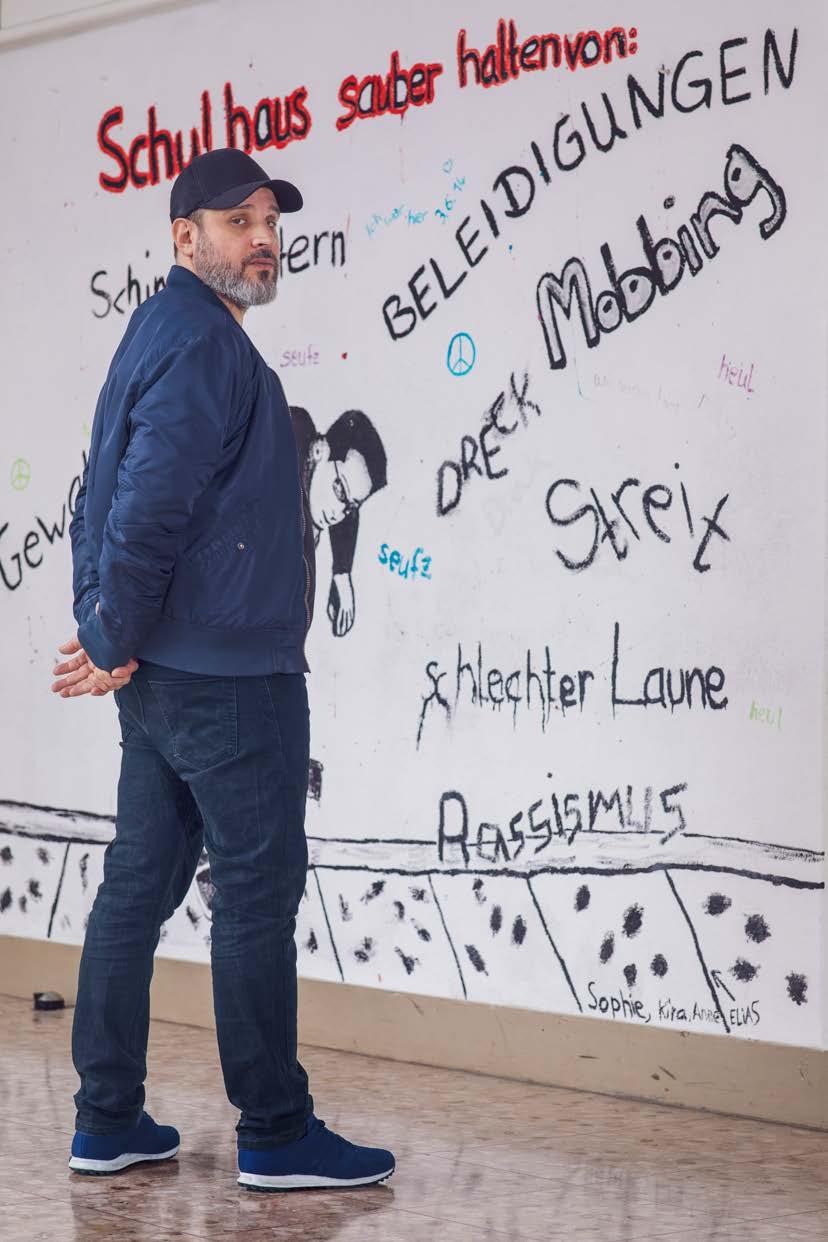 Schulhaus sauber halten von:
BELEIDIGUNGEN
Ich war
her
3.6.14
Schim
tern
Mobbing
seufz
heul
DRECK
Streit
Gewa
seufz
schlechter Laune
heul
Rassismus
Sophie, Kira, Anne, ELIAS